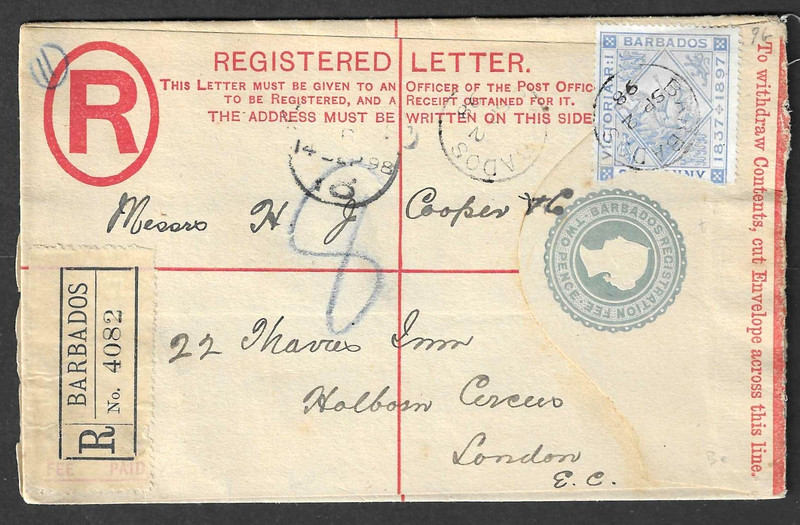 11
R
REGISTERED LETTER.
THIS LETTER MUST BE GIVEN TO AN OFFICER OF THE POST OFFIC
TO BE REGISTERED, AND A RECEIPT OBTAINED FOR IT.
THE ADDRESS MUST BE WRITTEN ON THIS SIDE
BARBADOS
VICTORIA R:I
1837-1897
NNY
BARBADOS
SP 2
98
ADOS
2
14 98
96
To withdraw Contents, cut Envelope across this line.
Messrs H. J Cooper & Co
8
BARBADOS REGISTRATION FEE
TWO PENCE
22 Thavies Inn
Holborn Circus
London
E.C.
R BARBADOS
No. 4082
FEE PAID